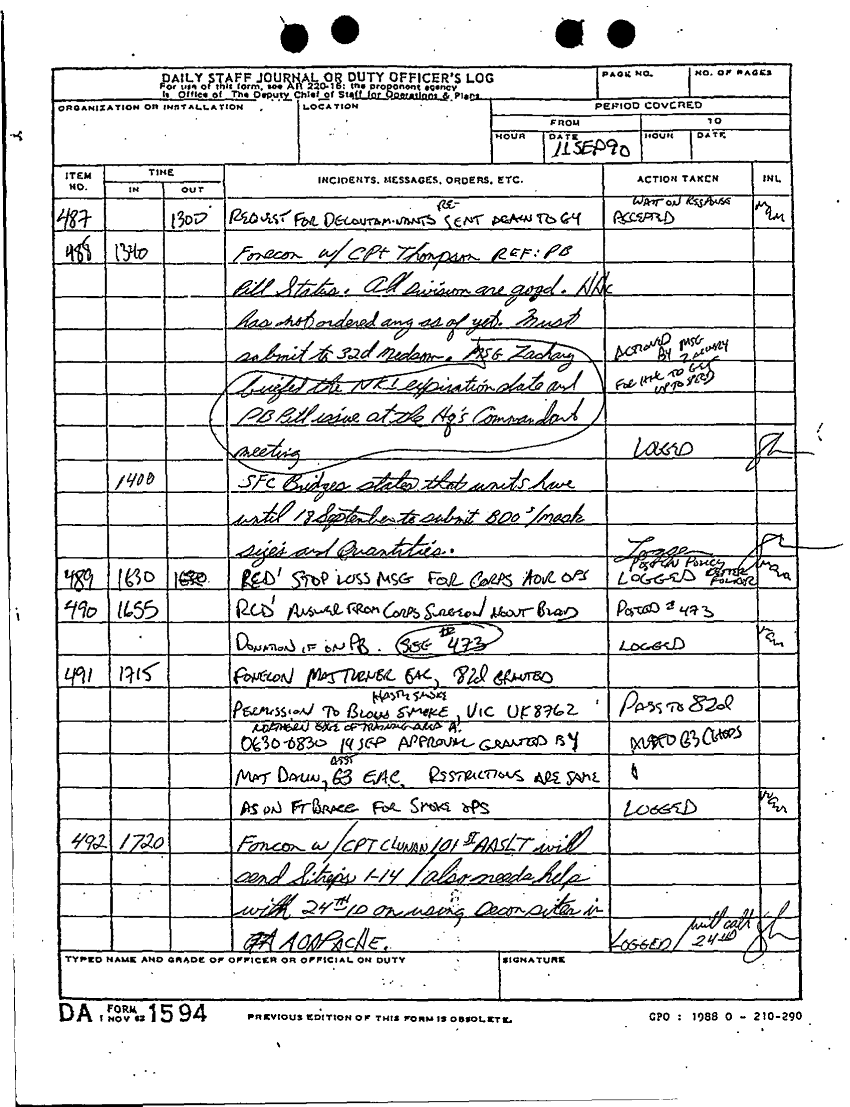 DAILY STAFF JOURNAL OR DUTY OFFICER'S LOG
For use of this form, see AR 220-15; the proponent agency
is Office of The Deputy Chief of Staff for Operations & Plans.
PAGE NO.
NO. OF PAGES
ORGANIZATION OR INSTALLATION
LOCATION
PERIOD COVERED
FROM
TO
HOUR
DATE
HOUR
DATE
11SEP90
ITEM NO.
TIME
IN
OUT
INCIDENTS, MESSAGES, ORDERS, ETC.
ACTION TAKEN
INL
487 1300 REQUEST FOR SENT AGAIN TO G4
RE-
WAIT ON RESPONSE
ACCEPTED
488 1340 Fonecon w/ CPT Thompson REF: PB
Pill States. All division are good.
has not ordered any as of yet. Must
submit to 32d Medsom. MSG Zachary
BY MSG ZACHARY
briefed the expiration date and
FOR TO
PB Pill issue at the Hq's Commandant
meeting LOGGED
1400 SFC Bridges states that units have
until 18 September to submit BDO's/mask
sizes and Quantities.
489 1630 1630 RCD' STOP LOSS MSG FOR CORPS OPS LOGGED
POST IN POLICY LETTER FOLDER
490 1655 RCD' ANSWER FROM CORPS SURGEON ABOUT BLOOD POSTED # 473
DONATION IF ON PB. SEE # 473 LOGGED
491 1715 FONECON MAJ TURNER EAC, 82d GRANTED
HASTY SMOKE
PERMISSION TO BLOW SMOKE, VIC UK8762 PASS TO 82d
NORTHERN EDGE OF TRAINING AREA A.
0630-0830 14 SEP APPROVAL GRANTED BY G3
ASST
MAJ G3 EAC. RESTRICTIONS ARE SAME
AS ON FT BRAGG FOR SMOKE OPS LOGGED
492 1720 Fonecon w/CPT 101ST AASLT will
send Sitreps 1-14 / also needs help
with 24TH ID on using Decon sites in
LOGGED/ will call 24TH ID
TYPED NAME AND GRADE OF OFFICER OR OFFICIAL ON DUTY
SIGNATURE
DA FORM 1 NOV 62 1594
PREVIOUS EDITION OF THIS FORM IS OBSOLETE.
GPO : 1988 O - 210-290